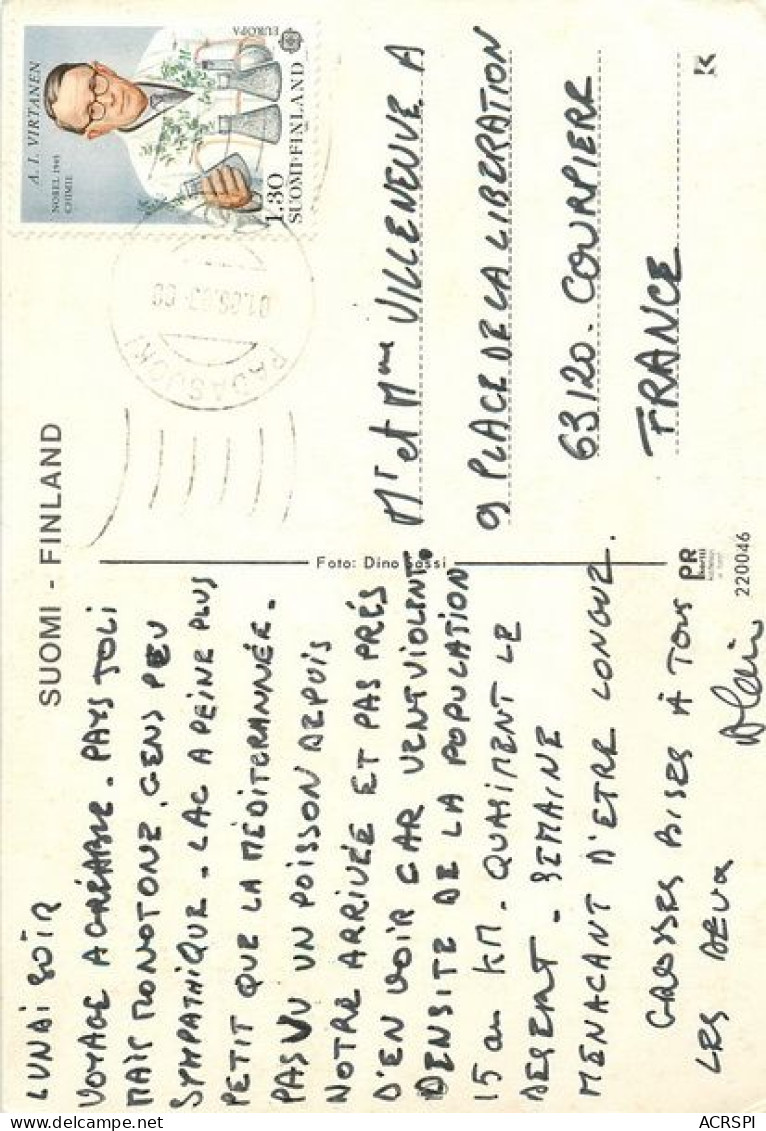 SUOMI - FINLAND
LUNDI SOIR
VOYAGE AGRÉABLE - PAYS JOLI
MAIS MONOTONE, GENS PEU
SYMPATHIQUE - LAC A PEINE PLUS
PETIT QUE LA MÉDITERANNÉE -
PAS VU UN POISSON DEPUIS
NOTRE ARRIVÉE ET PAS PRÉS
D'EN VOIR CAR VENT VIOLENT.
DENSITE DE LA POPULATION
15 au KM - QUASIMENT LE
DESERT - SEMAINE
MENACANT D'ETRE LONGUE.
GROSSES BISES À TOUS
LES DEUX
Alain
Foto: Dino Sassi
PR
220046
A. I. VIRTANEN
NOBEL 1945
CHIMIE
EUROPA
1.30
SUOMI-FINLAND
PADASJOKI
Mr et Mme VILLENEUVE A
9 PLACE DE LA LIBERATION
63120 - COURPIERE
FRANCE
K
ACRSPI